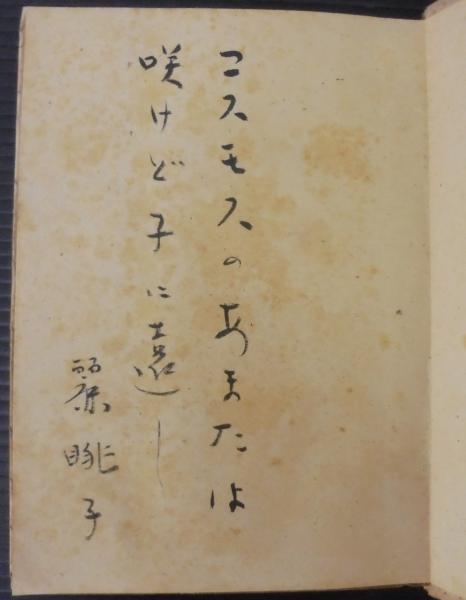 コスモスのあまたは
咲けど子に遠し
眺子